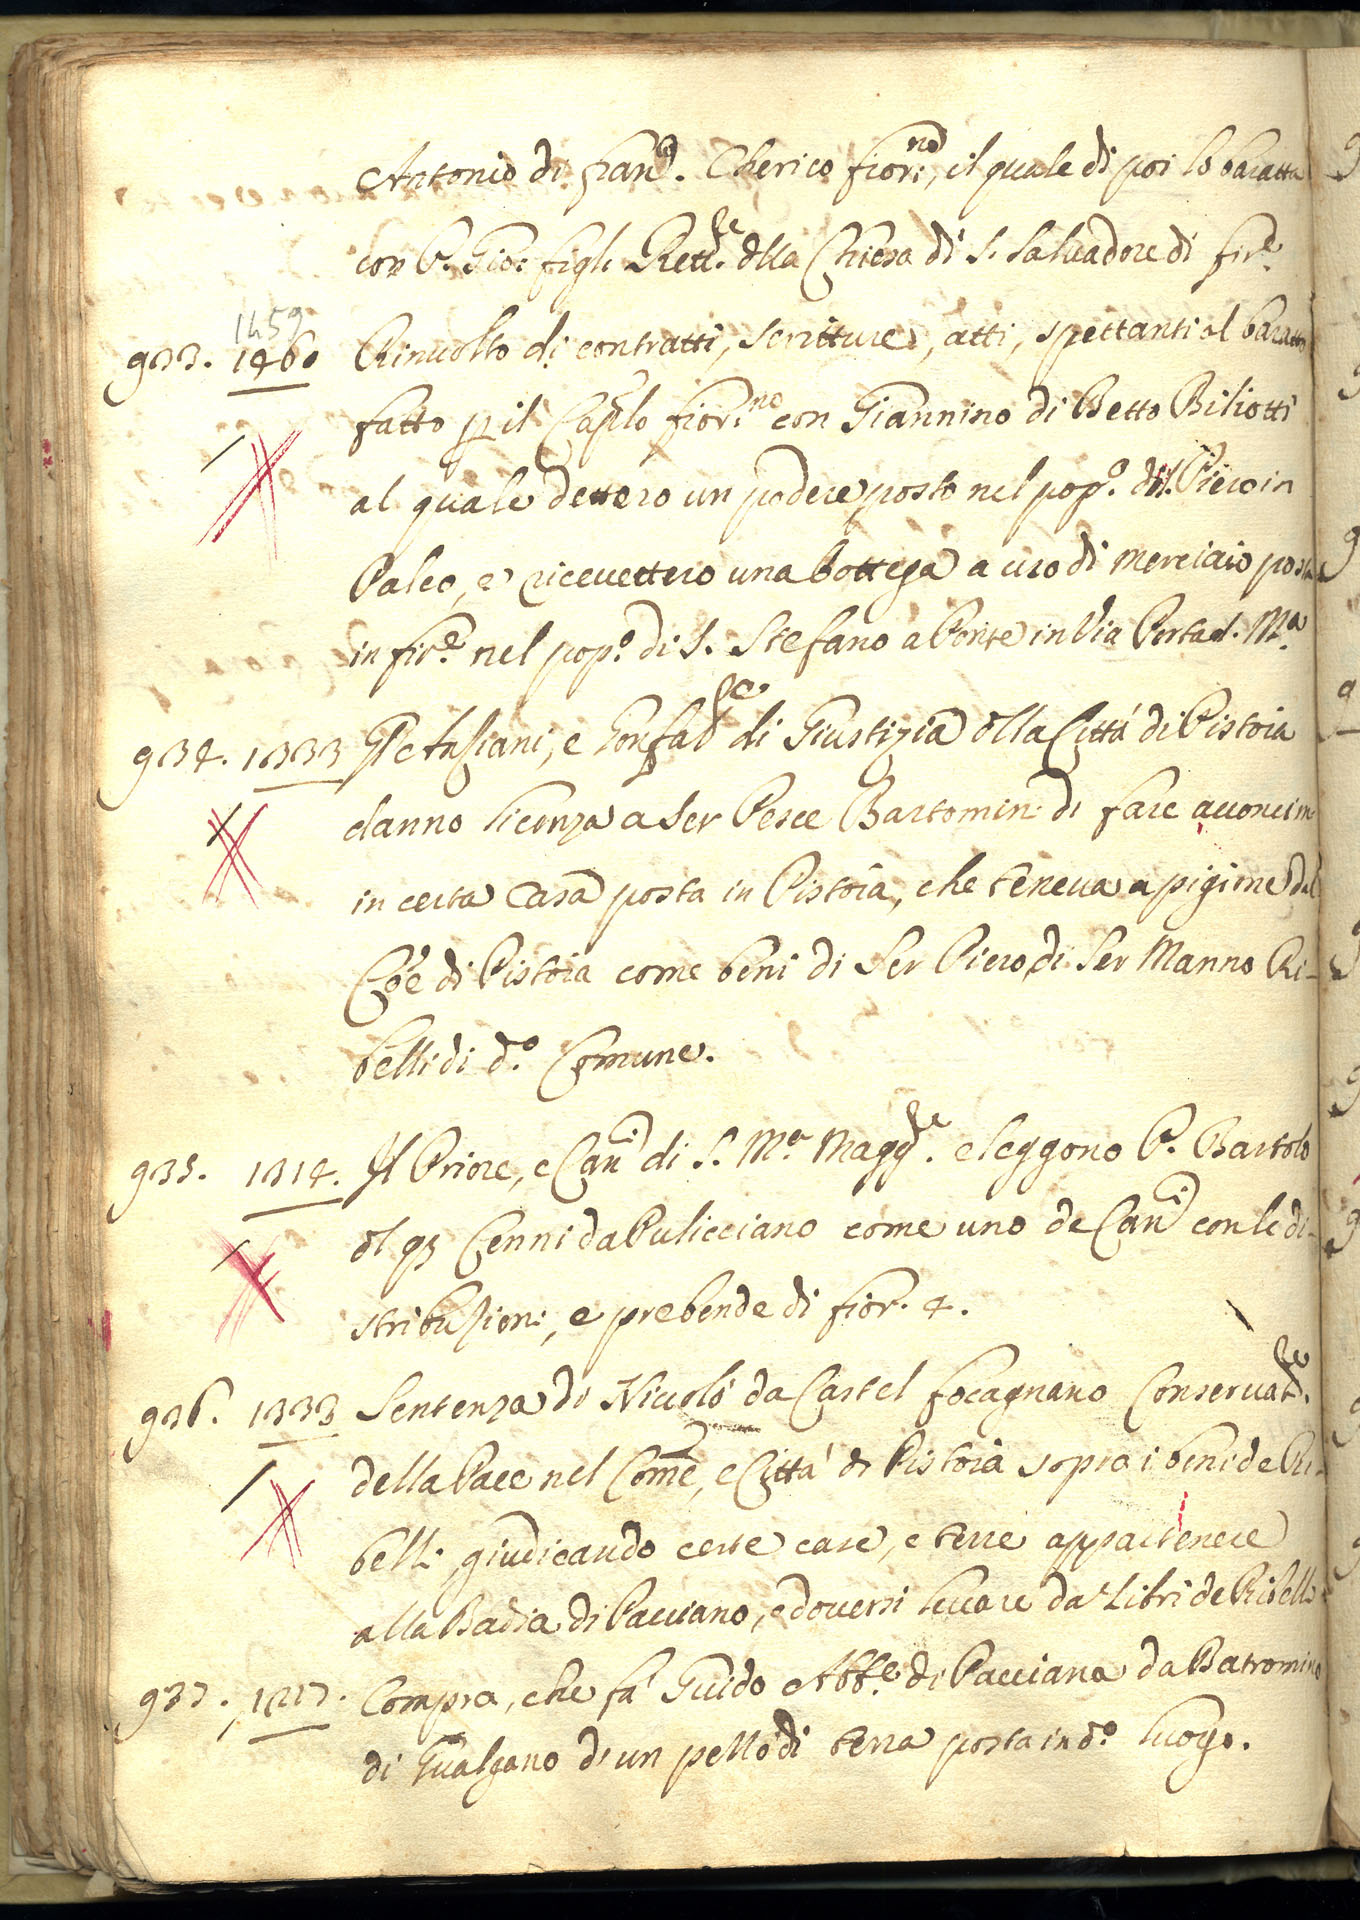 Antonio di Fran.co Cherico fior.no, il quale di poi lo baratta
con P. Gio: figli Rett.re dlla Chiesa di S. Salvadore di fir.e
1459
933. 1460 Rinuolto di contratti, scritture, atti, spettanti al baratto
fatto p il Cap.lo fior.no con Giannino di Betto Biliotti
al quale dettero un podere posto nel pop.o di S. Piero in
Palco, e riceuettero una bottega a uso di merciaio posta
in fir.e nel pop.o di S. Stefano a Ponte in Via Porta S. M.a
934. 1333 Gl' Anziani, e Gonfal.re di Giustizia dlla Città di Pistoia
danno licenza a Ser Pesce Bartomin: di fare acconcimi
in certa casa posta in Pistoia, che teneua a pigione dal
Coe di Pistoia come beni di Ser Piero, di Ser Manno Ri-
belli di d.o Comune.
935. 1314. Il Priore, e Can.i di S. M.a Magg.re eleggono P. Bartolo
dl qn Cenni da Pulicciano come uno de Can.i con le di-
stribuzioni, e prebende di fior. 4.
936. 1333 Sentenza di Nicolò da Castel focagnano Conseruat.re
della Pace nel Come, e Città di Pistoia sopra i beni de Ri-
belli, giudicando certe case, e terre appartenere
alla Badia di Pacciano, e douersi leuare da Libri de Ribelli
937. 1217. Compra, che fa' Guido Abb.e di Pacciana da Batromino
di Gualgano d'un pezzo di terra posta in d.o luogo.